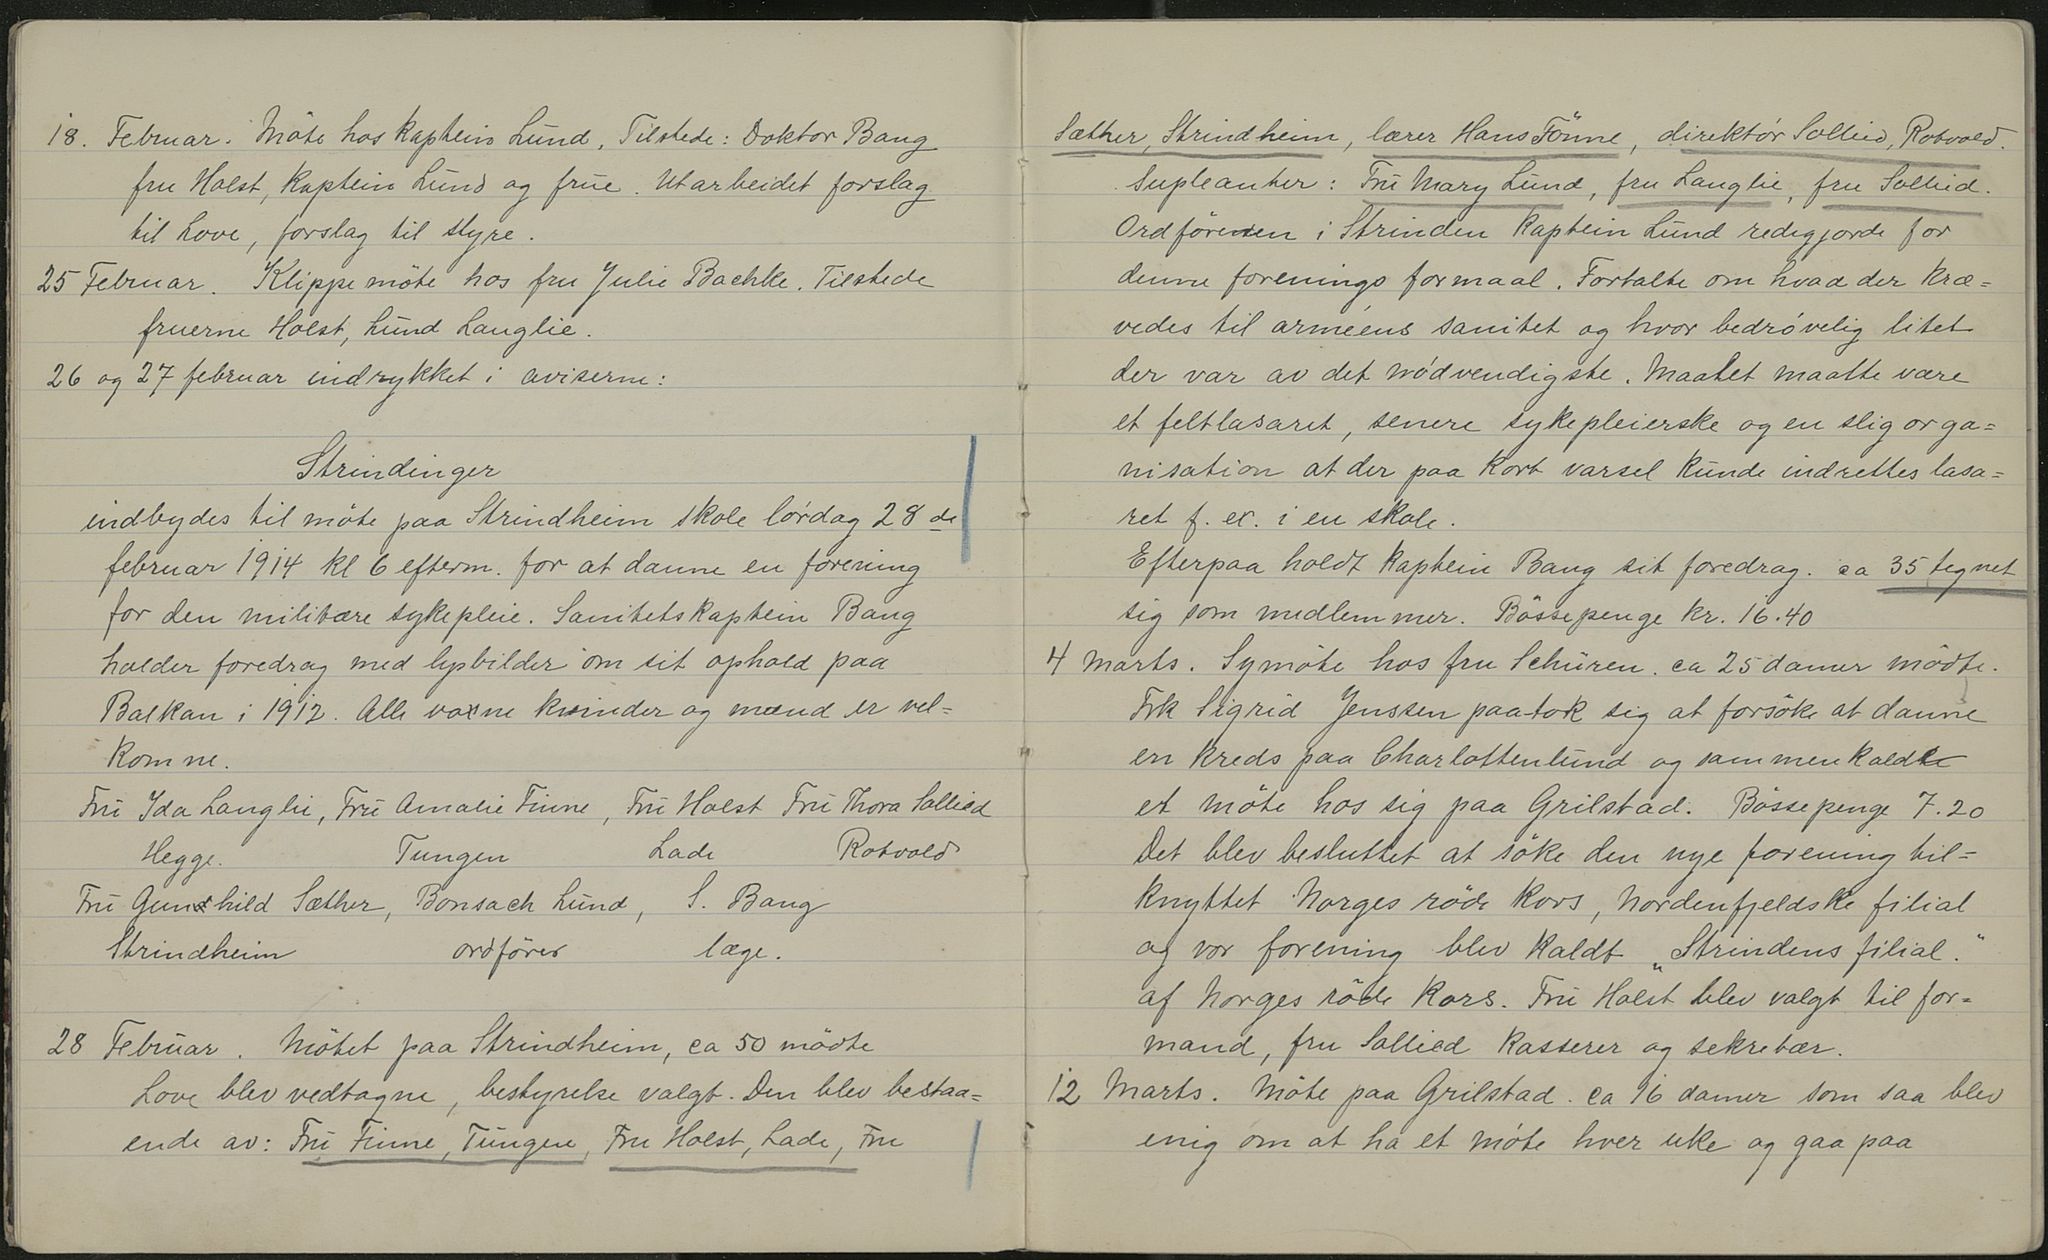 18. Februar. Möte hos Kaptein Lund, Tilstede: Doktor Bang
fru Holst, Kaptein Lund og frue. Utarbeidet forslag
til Love, forslag til styre.
25 Februar. Klippemöte hos fru Julie Bachke. Tilstede
fruerne Holst, Lund Langlie.
26 og 27 februar indrykket i aviserne:
Strindinger
indbydes til möte paa Strindheim skole lórdag 28de
februar 1914 kl 6 efterm. for at danne en forening
for den militære sykepleie. Sanitetskaptein Bang
holder foredrag med lysbilder om sit ophold paa
Balkan i 1912. Alle voxne kvinder og mænd er vel=
komne.
Fru Ida Langlie, Fru Amalie Finne, Fru Holst Fru Thora Sollied
Hegge. Tungen Lade Rotvold
Fru Gunhild Sæther, Bonsach Lund, S. Bang
Strindheim ordförer læge.
28 Februar. Mötet paa Strindheim, ca 50 mödte
Love blev vedtagne, bestyrelse valgt. Den blev bestaa=
ende av: Fru Finne, Tungen, Fru Holst, Lade, Fru
Sæther, Strindheim, lærer Hans Fönne, direktör Sollied, Rotvold.
Supleanter: Fru Mary Lund, fru Langlie, fru Sollied.
Ordföreren i Strinden Kaptein Lund redegjorde for
denne forenings formaal. Fortalte om hvad der kræ=
vedes til arméens sanitet og hvor bedróvelig litet
der var av det nódvendigste. Maalet maatte være
et feltlasaret, senere sykepleierske og en slig orga=
nisation at der paa kort varsel kunde indrettes lasa=
ret f. ex. i en skole.
Efterpaa holdt Kaptein Bang sit foredrag. ca 35 tegnet
sig som medlemmer. Bössepenge kr. 16.40
4 Marts. Symöte hos fru Schüren. ca 25 damer mödte.
Frk Sigrid Jenssen paatok sig at forsöke at danne
en kreds paa Charlottenlund og sammenkaldte
et möte hos sig paa Grilstad. Bössepenge 7.20
Det blev besluttet at söke den nye forening til=
knyttet Norges röde Kors, Nordenfjeldske filial
og vor forening blev kaldt „Strindens filial."
af Norges röde Kors. Fru Holst blev valgt til for=
mand, fru Sollied Kasserer og sekretær.
12 Marts. Möte paa Grilstad. ca 16 damer som saa blev
enig om at ha et móte hver uke og gaa paa